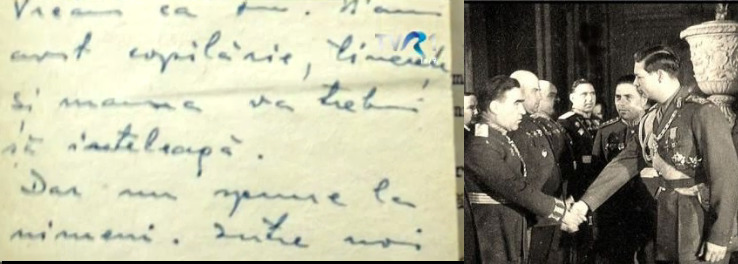 Vreau ca tu. N'am
avut copilărie, tinereţe
şi mama va trebui
să inteleagă.
Dar nu spune la
nimeni. Intre noi
TVR